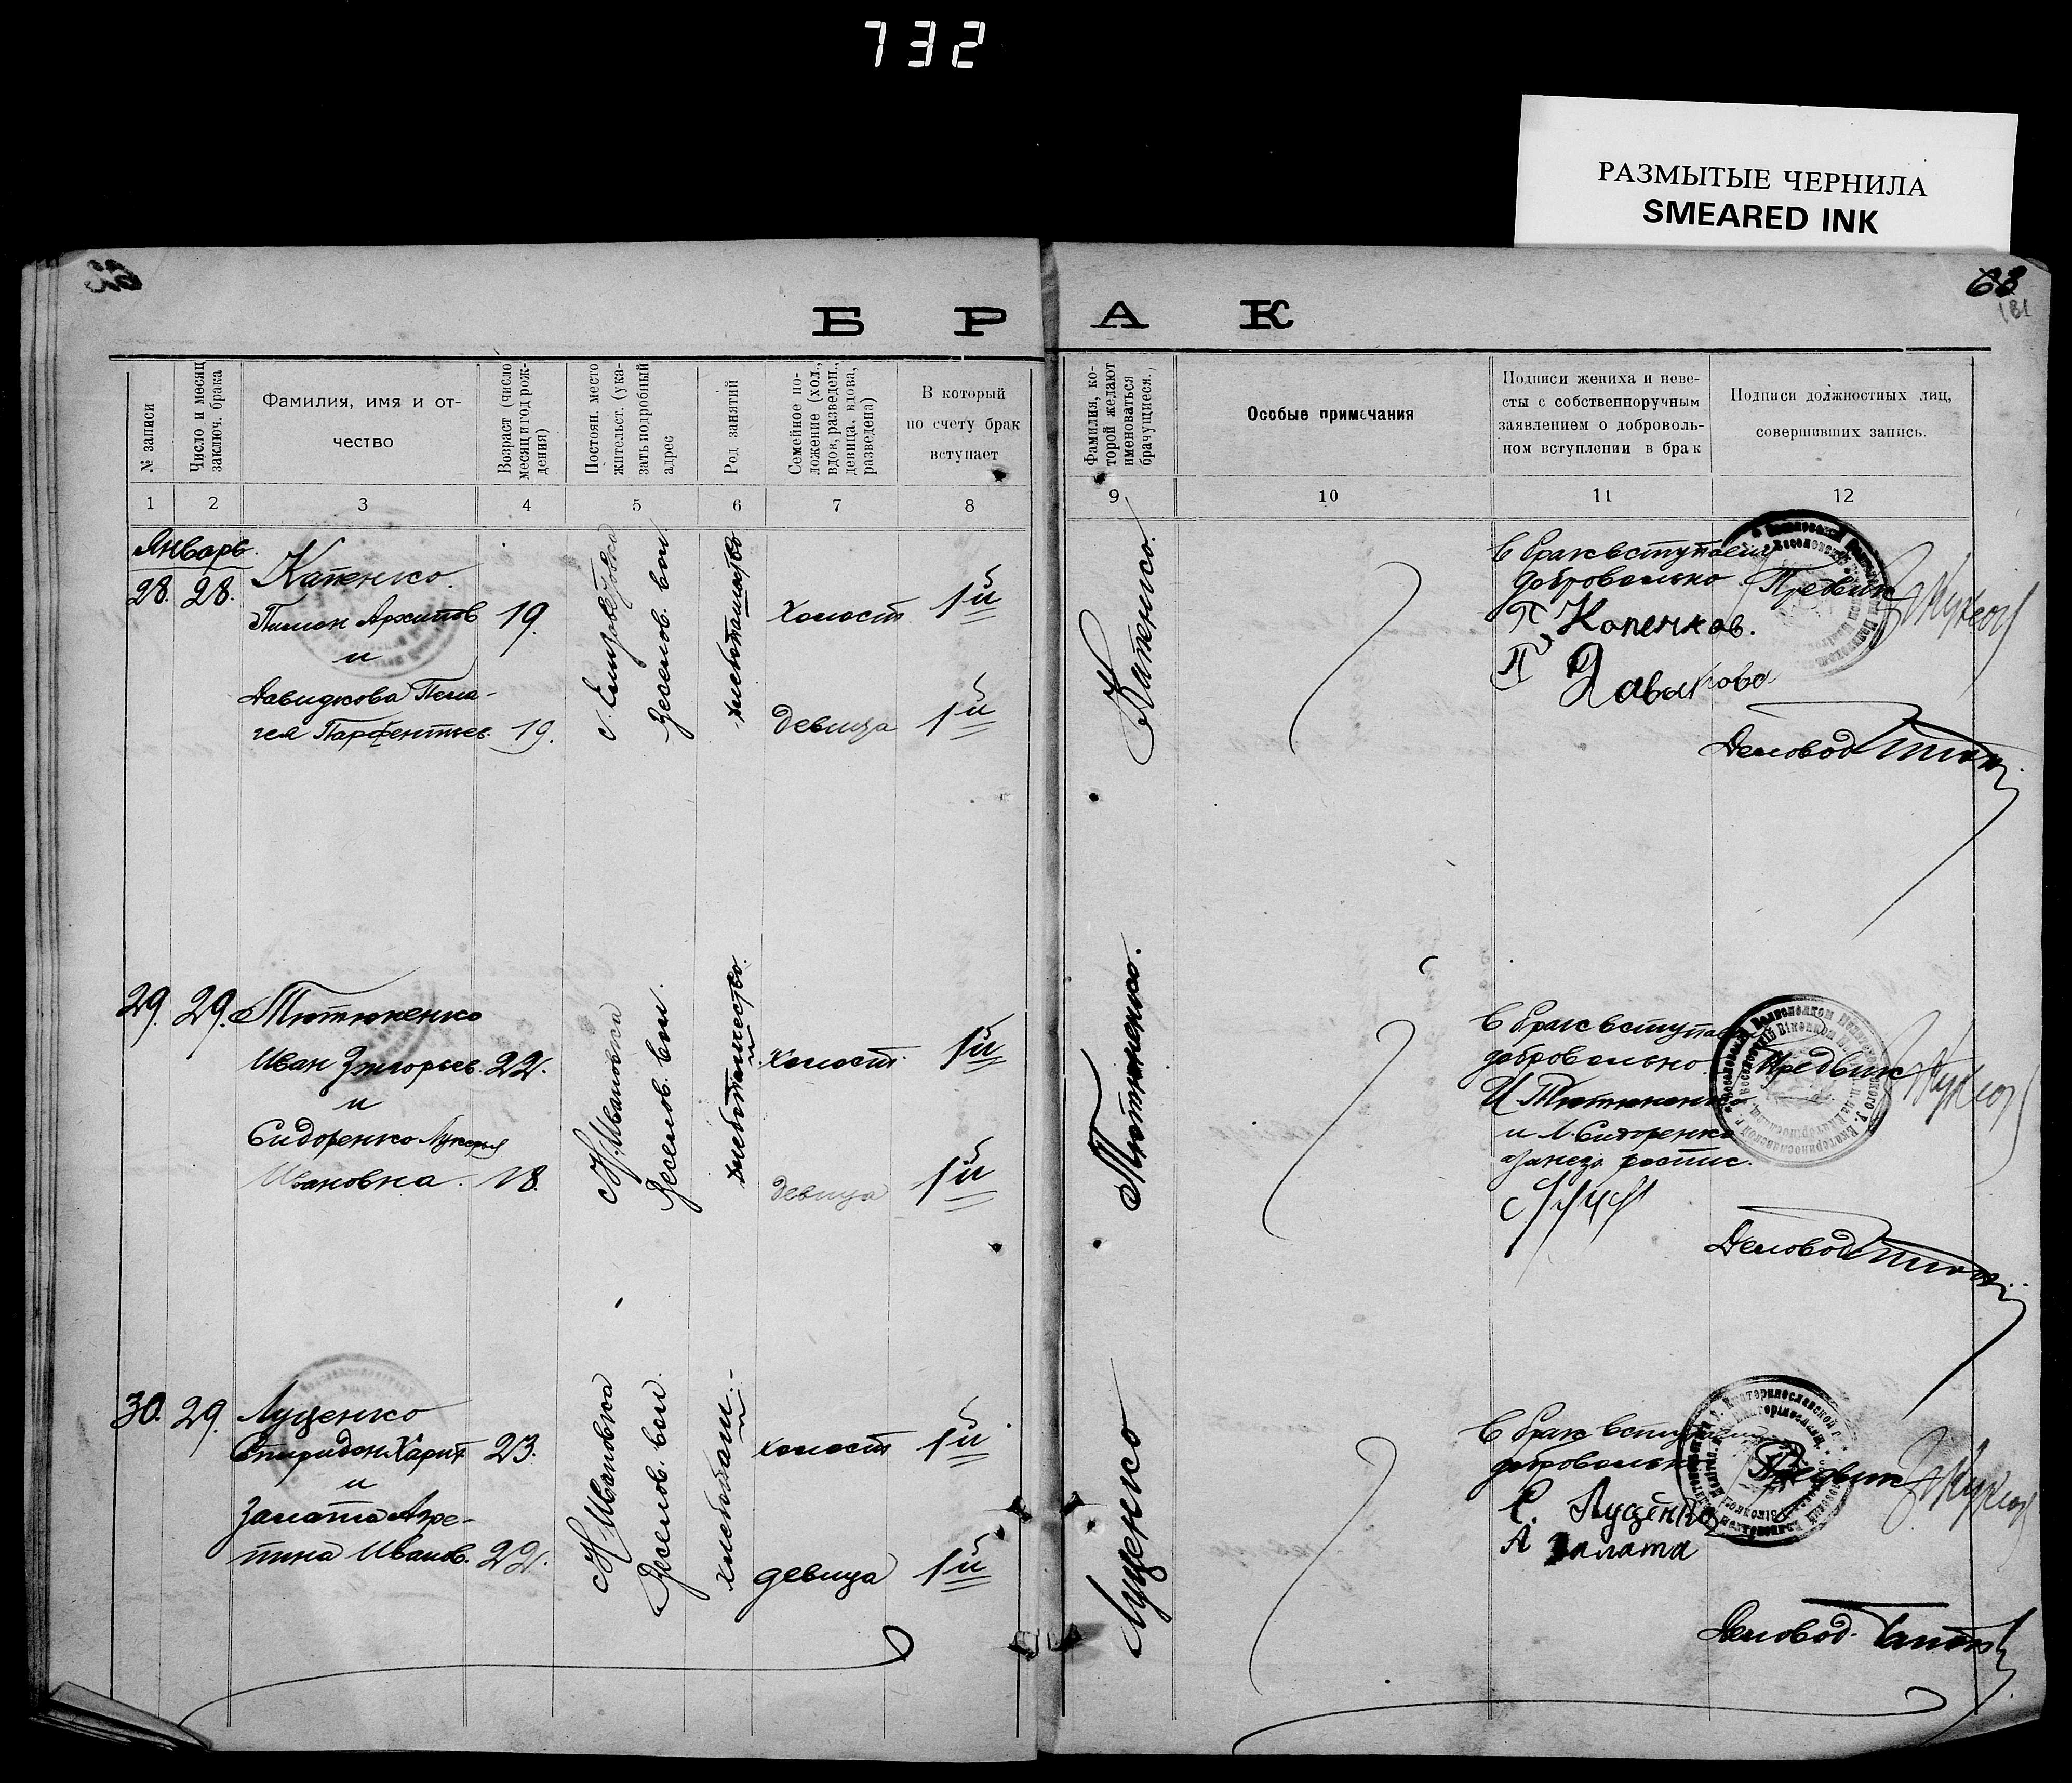 732
РАЗМЫТЫЕ ЧЕРНИЛА
SMEARED INK
63
181
Б Р А К
№ записи
Число и месяц
заключ. брака
Фамилия, имя и от-
чество
Возраст (число
месяц и год рож-
дения)
Постоян. место
жительст. (ука-
зать подробный
адрес
Род занятий
Семейное по-
ложение (хол.,
вдов, разведен.,
девица, вдова,
разведена)
В который
по счету брак
вступает
Фамилия, ко-
торой желают
именоваться
брачущиеся.
Особые примечания
Подписи жениха и неве-
сты с собственноручным
заявлением о доброволь-
ном вступлении в брак
Подписи должностных лиц,
совершивших запись.
1 2 3 4 5 6 7 8 9 10 11 12
Январь
28. 28. Капенко
Пимон Архипов 19.
и
Давидкова Пела-
гея Парфентьев. 19.
Веселов. вол.
хлебопашество
холост 1й
девица 1й
Капенко.
в брак вступаем
добровольно
П Копенков.
П Давидкова
Деловод
29. 29. Тютюненко
Иван Григорьев. 22.
и
Сидоренко Лукерья
Ивановна. 18.
Н. Ивановка
Веселов. вол.
хлебопашество.
холост. 1й
девица 1й
Тютюненко.
в брак вступаем
добровольно.
И Тютюненко
и Л. Сидоренко
Предвик
Деловод
30. 29. Луценко
Спиридон Харит 23.
и
Залата Агре-
пина Иванов. 22.
Н Ивановка
Веселов. вол.
хлебопаш.
холост 1й
девица 1й
Луценко
в брак вступаем
добровольно
С. Луценко
А Залата
Предвик
Деловод.